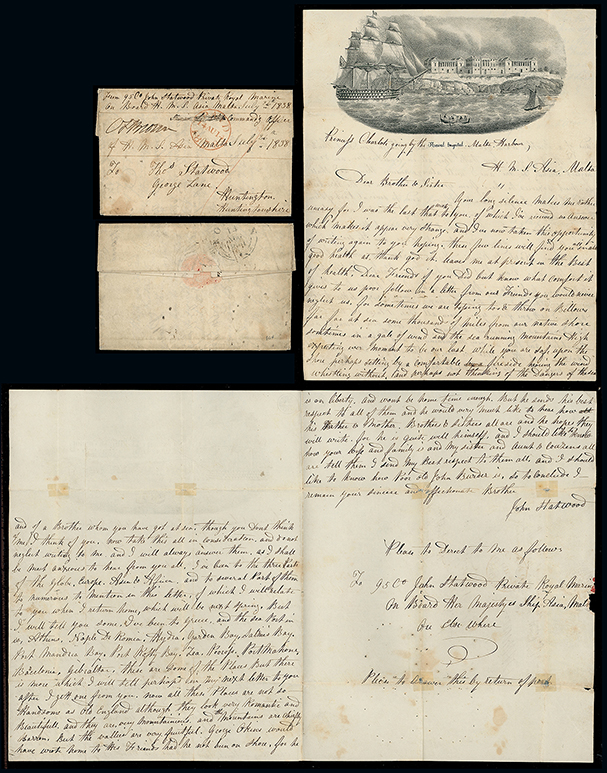 From 95 Co John Statwood Private Royal Marine
On Board H. M. S. Asia Malta July 1838
Commanding Officer
of H. M. S. Asia Malta July 1838
To Thos Statwood
George Lane
Huntington
Huntingtonshire
Princess Charlotte going by the Naval Hospital - Malta Harbour,
H. M. S. Asia, Malta
Dear Brother & Sister
Your long silence makes me rather
uneasy for I was the last that wrote to you, of which I've received no answer
which makes it appear very strange, and I've now taken this opportunity
of writing again to you hoping these few lines will find you in as
good health as, thank God it leaves me at present in the Best
of health. Dear Friends if you Did but know what comfort it
gives to us poor fellows in a letter from our Friends you would never
neglect us. for sometimes we are toping to & throw on Bellows
far far at sea some thousand of miles from our native shore
sometimes in a gale of wind and the sea running mountains High
Expecting ever moment to be our last while you are safe upon the
Shore perhaps setting by a comfortable fireside hearing the wind
whistling without, and perhaps not thinking of the Dangers of the sea
and of a Brother whom you have got at sea. though you dont think
of me I think of you. now take this all in consideration, and do not
neglect writing to me, and I will always answer them, as I shall
be most anxious to hear from you all. I've been to the three parts
of the Globe, Europe Asia & Africa, and to several Parts of them
to numerous to mention in this letter, of which I will relate
to you when I return home, which will be next spring. But
I will tell you some, I've been to Greece, and the sea Port in
is, Athens, Naple De Romia, Hydra, Garden Bay, Salmis Bay,
Port Mandria Bay, Port Rafty Bay, Zea, Porose, Port Mahone,
Barcelonia, Gibraltar, these are some of the Places But there
is more which I will tell perhaps in my next letter to you
after I get one from you. now all these Places are not so
Handsome as Old England although they look very Romantic and
Beautifull, and they are very mountainious, and mountains are
Barron. But the vallies are very fruitful. George Okins would
have wrote home to his Friends had he not bin on shore, for he
is on liberty, and wont be home time enough. But he sends his best
respect to all of them and he would very much like to hear how
his Father & Mother, Brothers & Sisters all are and he hopes they
will write. for he is quite well himself, and I should like to know
how your wife and family is and my sister and Aunt & couzens all
are tell them I send my Best respect to them all, and I should
like to know how Poor old John is, so to conclude I
remain your sincere and affectionate Brother
John Statwood
Please to Derect to me as follows
To 95 Co John Statwood Private Royal Marine
On Board Her Majestyes Ship Asia, Malta
or else where
Please to answer this by return of post